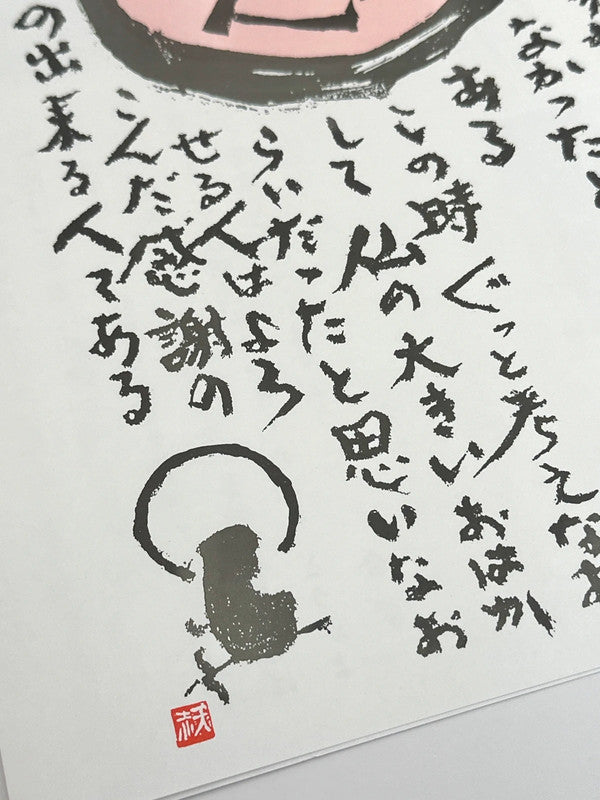 なかったと
ある
この時ぐっと考えなお
して仏の大きいおはか
らいだったと思いなお
せる人はよろ
こんだ感謝の
の出来る人である